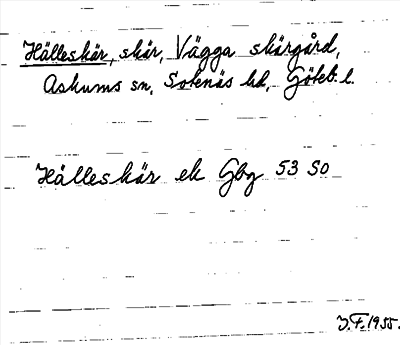 Hälleskär, skär, Vägga skärgård,
Askums sn, Sotenäs hd, Göteb. l.
Hälleskär ek Gbg 53 SO
J.F. 1955.